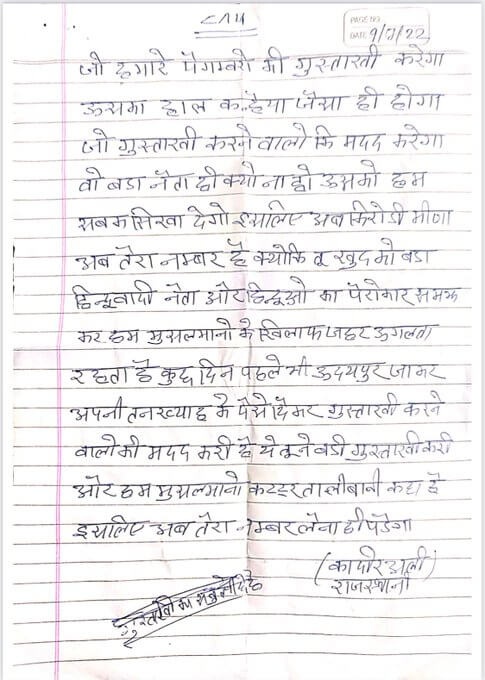 PAGE NO.
DATE 9/7/22
जो हमारे पैगम्बरो की गुस्ताखी करेगा
उसका हाल कन्हैया जैसा ही होगा
जो गुस्ताखी करने वालो कि मदद करेगा
वो बडा नेता ही क्यो ना हो उसको हम
सबक सिखा देगो इसलिए अब किरोडी मीणा
अब तेरा नम्बर है क्योकि तू खुद को बडा
हिन्दूवादी नेता और हिन्दूओ का पैरोकार समझ
कर हम मुसलमानो के खिलाफ जहर उगलता
रहता है कुछ दिन पहले भी उदयपुर जाकर
अपनी तनख्याह मै पैसे देकर गुस्ताखी करने
वालो की मदद करी है ये तूने बडी गुस्ताखी करी
और हम मुसलमानो कटटर तालीबानी कहा है
इसलिए अब तेरा नम्बर लेना ही पडेगा
(कादिर अली)
राजस्थानी